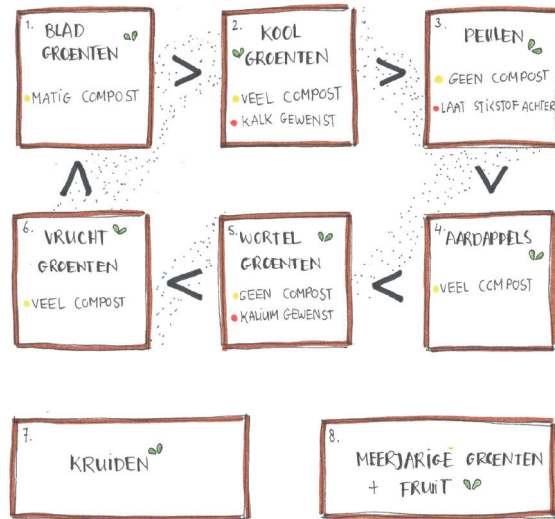 1.
BLAD
GROENTEN
MATIG COMPOST
>
2.
KOOL
GROENTEN
VEEL COMPOST
KALK GEWENST
>
3.
PEULEN
GEEN COMPOST
LAAT STIKSTOF ACHTER
4.
AARDAPPELS
VEEL COMPOST
<
5.
WORTEL
GROENTEN
GEEN COMPOST
KALIUM GEWENST
<
6.
VRUCHT
GROENTEN
VEEL COMPOST
7.
KRUIDEN
8.
MEERJARIGE GROENTEN
+ FRUIT